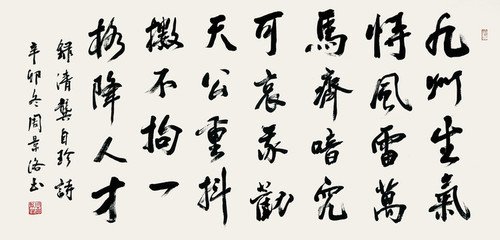 九州生氣
恃風雷萬
馬齊喑究
可哀我勸
天公重抖
擻不拘一
格降人才
錄清龔自珍詩
辛卯冬周景洛书